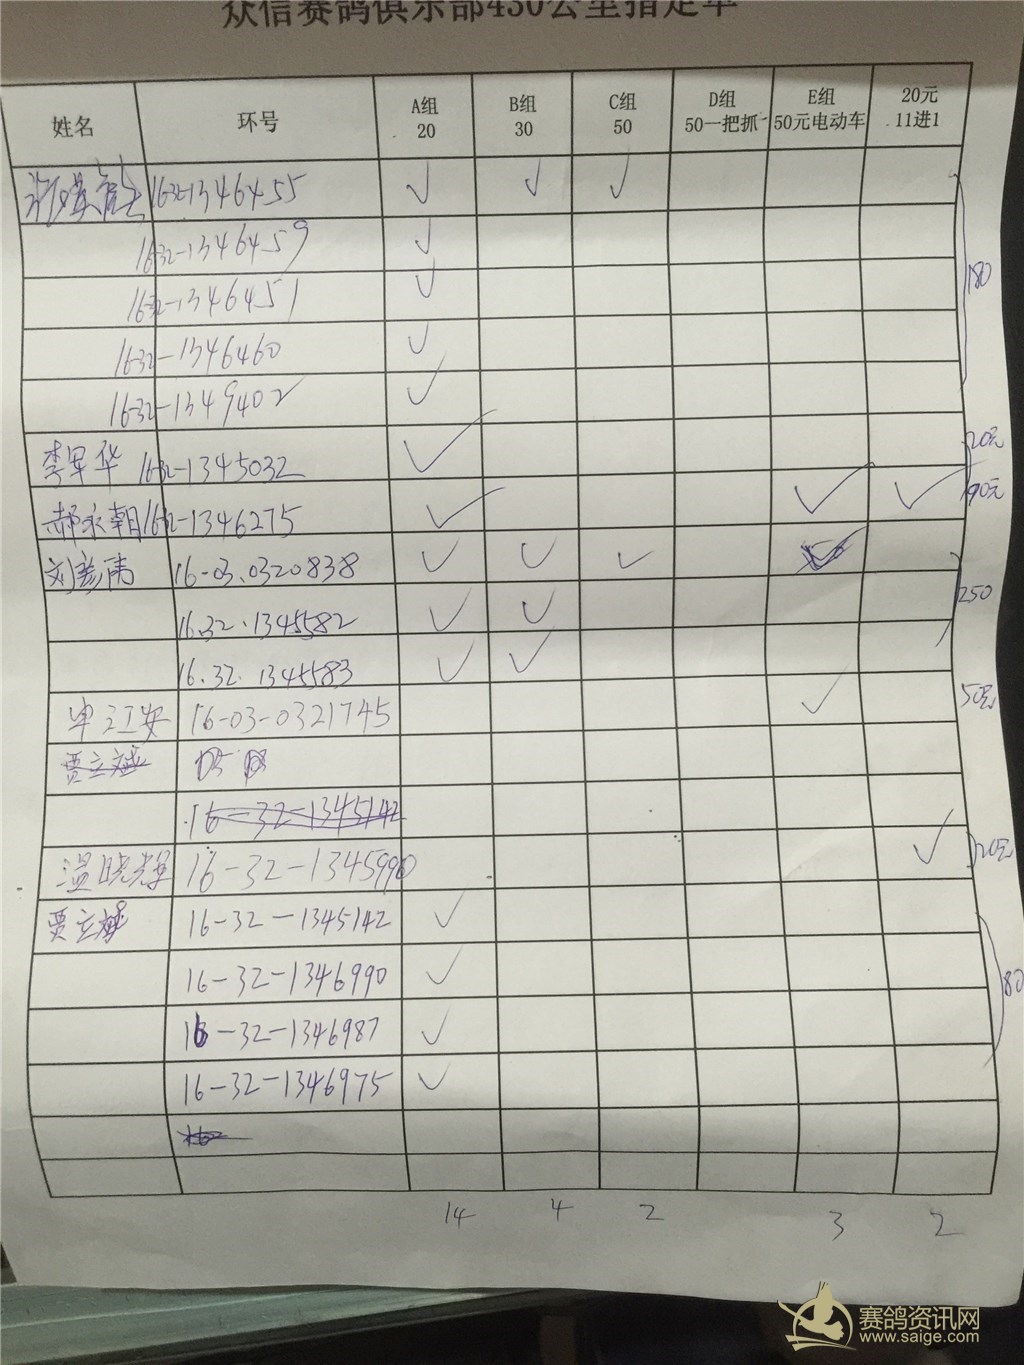 众信赛鸽俱乐部430公里指定单
姓名 环号 A组 20 B组 30 C组 50 D组 50一把抓 E组 50元电动车 20元 11进1
16-32-1346455 ✓ ✓ ✓
16-32-1346459 ✓
16-32-1346451 ✓ 180
16-32-1346460 ✓
16-32-1349402 ✓
李军华 16-32-1345032 ✓ 20元
郝永朝 16-32-1346275 ✓ ✓ ✓ 90元
刘彦伟 16-03.0320838 ✓ ✓ ✓ ✓
16.32.1345582 ✓ ✓ 250
16.32.1345583 ✓ ✓
申江安 16-03-0321745 ✓ 50元
贾立斌
16-32-1345142
温晓辉 16-32-1345990 ✓ 20元
贾立斌 16-32-1345142 ✓
16-32-1346990 ✓ 80
16-32-1346987 ✓
16-32-1346975 ✓
14 4 2 3 2
赛鸽资讯网
www.saige.com